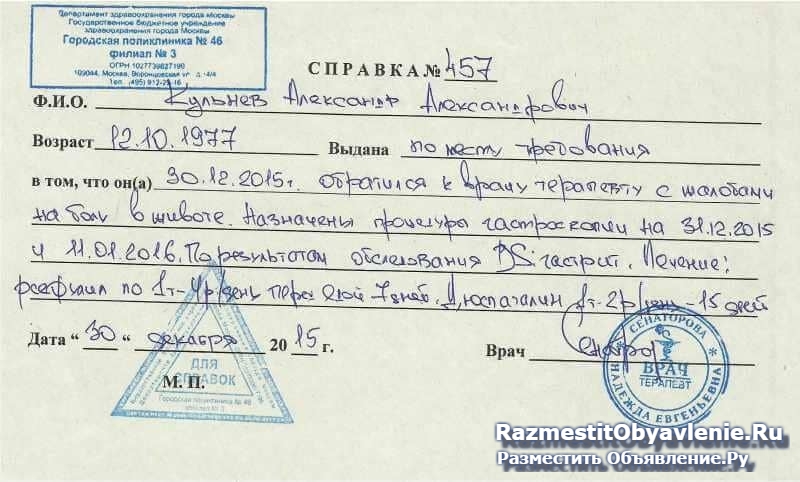 Департамент здравоохранения города Москвы
Государственное бюджетное учреждение
здравоохранения города Москвы
Городская поликлиника № 46
филиал № 3
ОГРН 1027739827199
109044, Москва, Воронцовская ул д. 14/4
Тел. (495) 912-23-16
СПРАВКА № 457
Ф.И.О. Кульнев Александр Александрович
Возраст 12.10.1977 Выдана по месту требования
в том, что он(а) 30.12.2015г. обратился к врачу терапевту с жалобами
на боли в животе. Назначены процедуры гастроскопии на 31.12.2015
и 11.01.2016. По результатам обследования DS: гастрит. Лечение:
по 1т-4р/день перед едой 7 дней. 1т-2р/день-15 дней
Дата "30" декабря 2015 г. Врач
М. П.
ДЛЯ
СПРАВОК
Городская поликлиника № 46
филиал № 3
СЕНАТОРОВА
НАДЕЖДА ЕВГЕНЬЕВНА
ВРАЧ
ТЕРАПЕВТ
RazmestitObyavlenie.Ru
Разместить Объявление.Ру